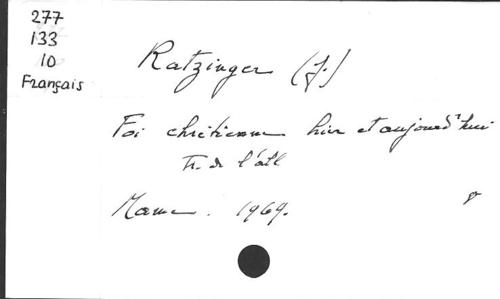 277
133
10
Français
Ratzinger (J.)
Foi chrétienne hier et aujourd'hui
Tr. de l'all
Mame. 1969.